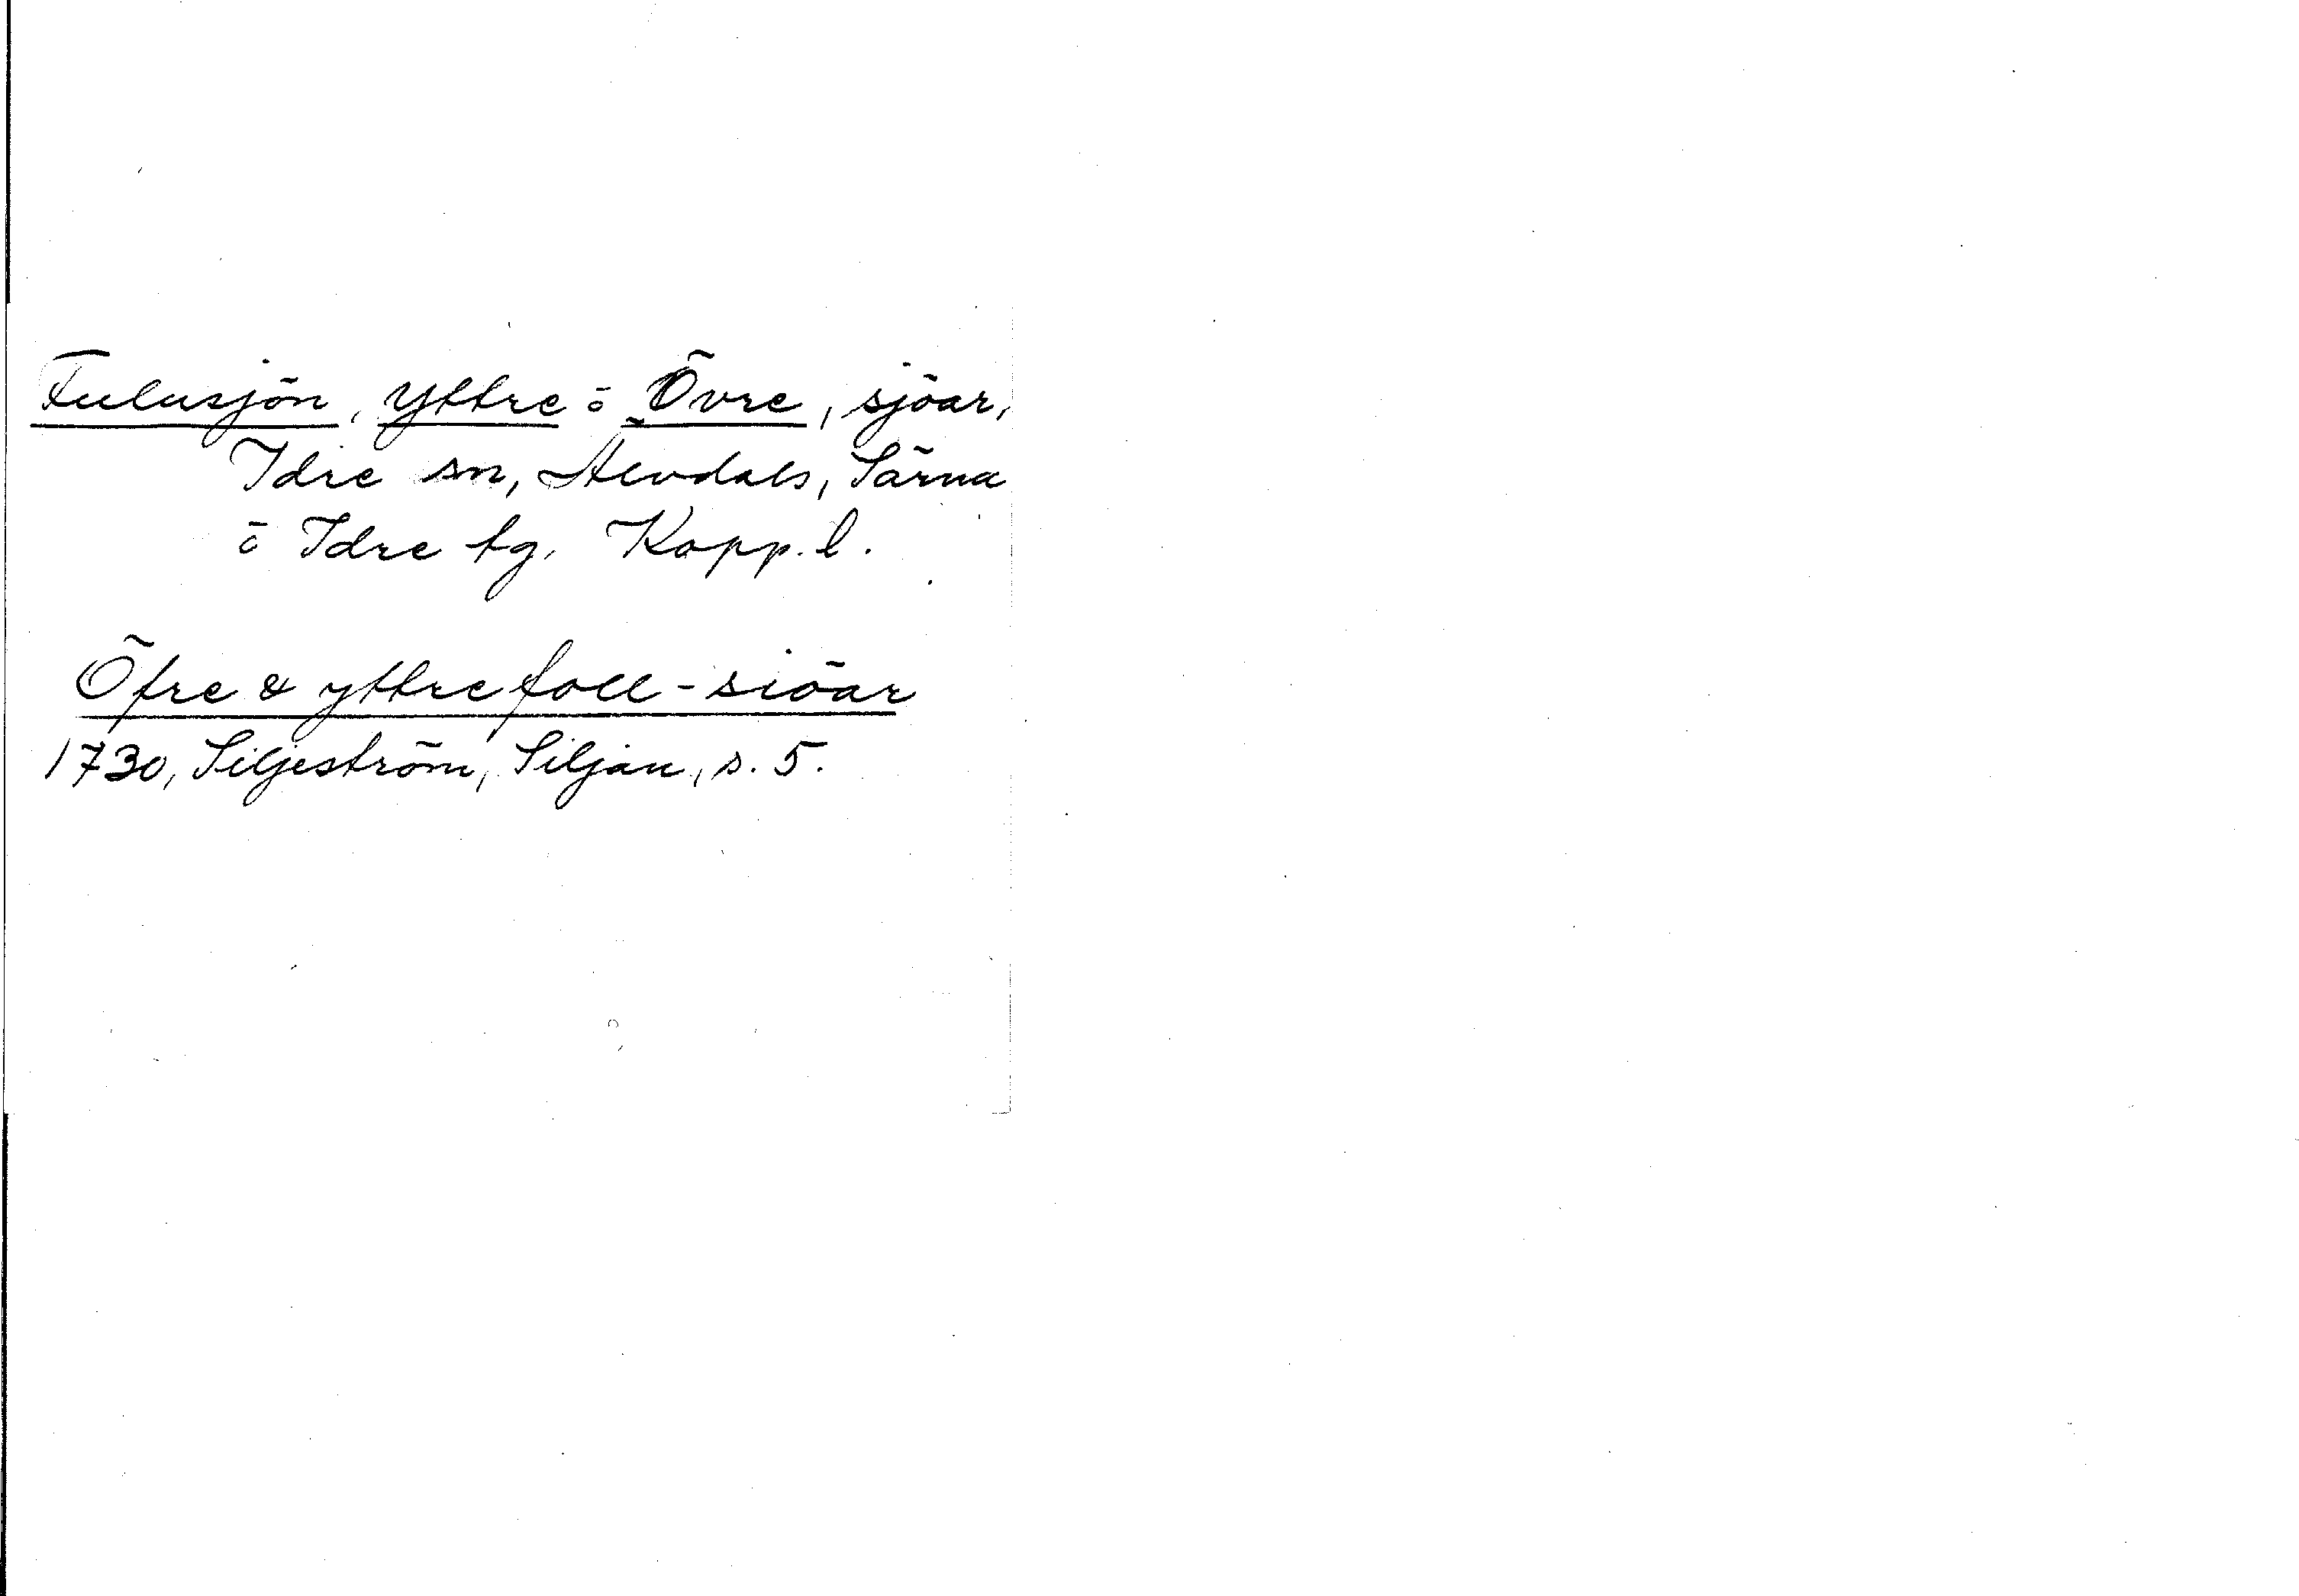 Fulusjön, Yttre o Övre, sjöar,
Idre sn, Älvdals, Särna
o Idre tg. Kopp. l.
Öfre & yttre foll-siöar
1730, Siljeström, Siljan, s. 5.